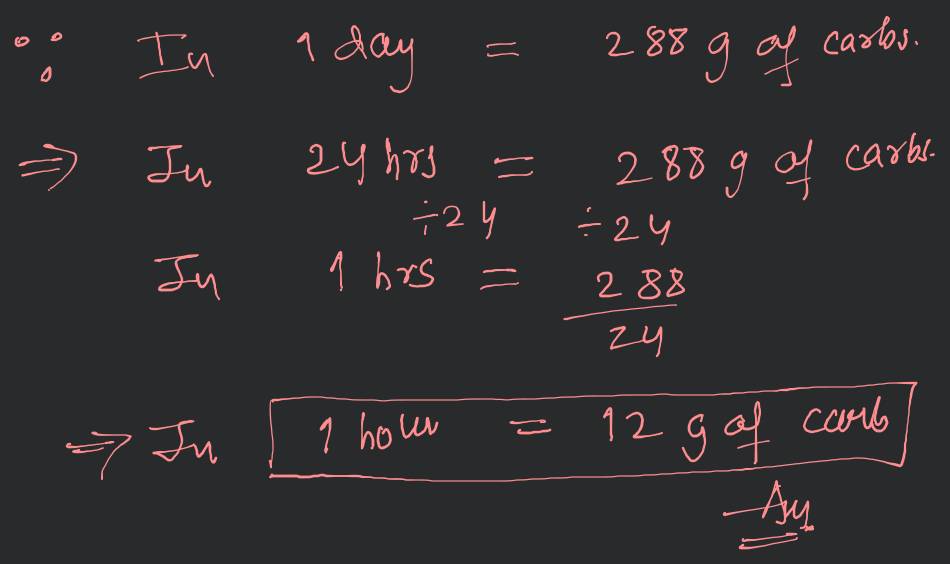 ∵ In 1 day = 288 g of carbs.
⇒ In 24 hrs = 288 g of carbs.
÷24 ÷24
In 1 hrs = 288
24
⇒ In 1 hour = 12 g of carb
Ans